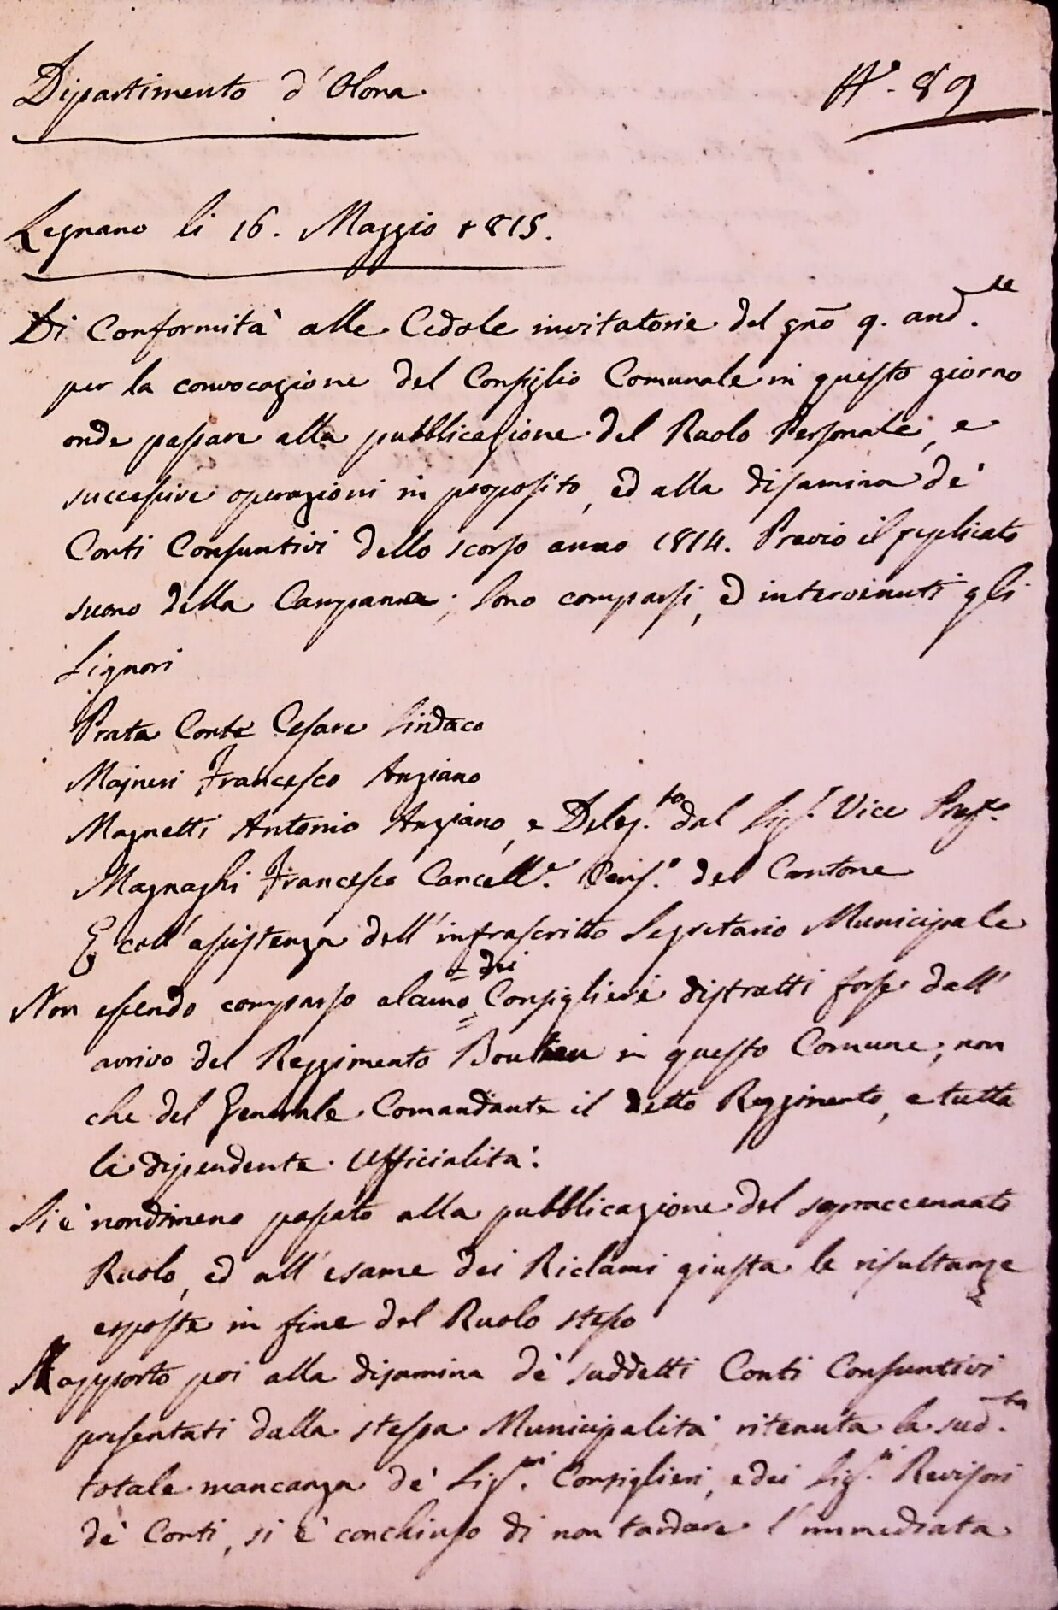 Dipartimento d'Olona.
N.° 89
Legnano li 16. Maggio 1815.
Di Conformità alle Cedole invitatorie del gno 9. and.te
per la convocazione del Consiglio Comunale in questo giorno
onde passare alla pubblicazione del Ruolo Personale, e
successive operazioni in proposito, ed alla disamina de'
Conti Consuntivi dello scorso anno 1814. Previo il replicato
suono della Campana; sono comparsi, ed intervenuti gli
Signori
Prata Conte Cesare Sindaco
Majneri Francesco Anziano
Magnetti Antonio Anziano, e Deleg.to dal Sig.r Vice Pref.o
Magnaghi Francesco Cancell.e Cens.o del Cantone
E coll'assistenza dell'infrascritto Segretario Municipale
Non essendo comparso alcuno dei Consiglieri distratti forse dall'
arrivo del Reggimento in questo Comune; non
che del Generale Comandante il detto Reggimento, e tutta
la dipendente Ufficialità:
Si è nondimeno passato alla pubblicazione del sopraccennato
Ruolo, ed all'esame dei Riclami giusta le risultanze
esposte in fine del Ruolo stesso
Rapporto poi alla disamina de' suddetti Conti Consuntivi
presentati dalla stessa Municipalità ritenuta la sud.ta
totale mancanza de' Sig.ri Consiglieri, e dei Sig.ri Revisori
de' Conti, si è conchiuso di non tardare l'immediata